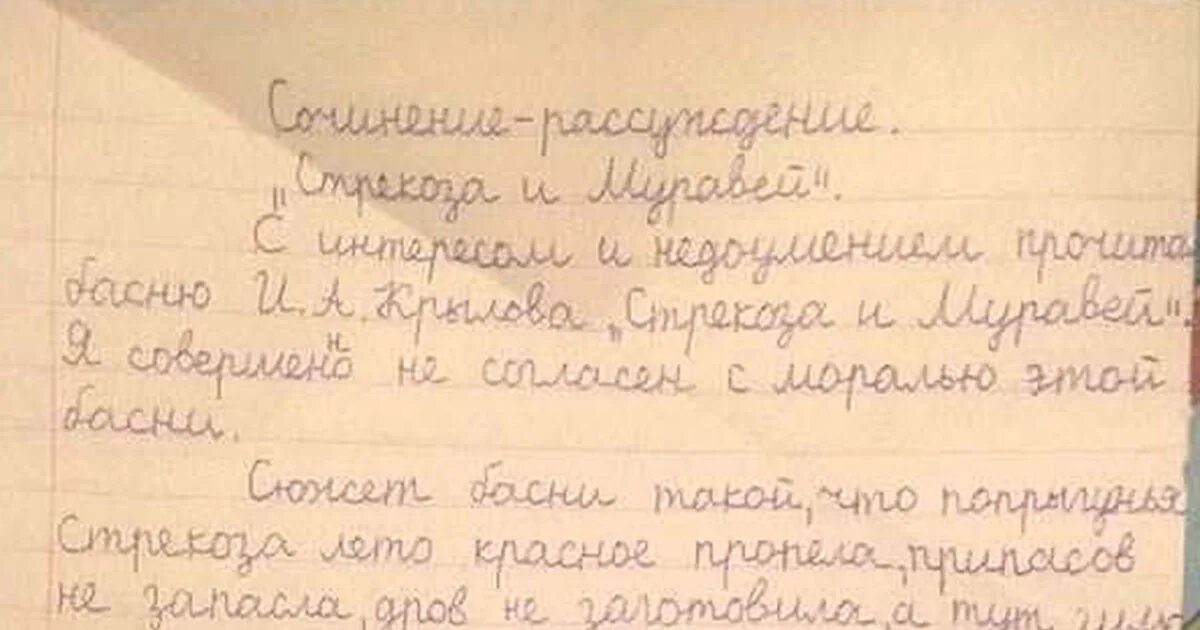 Сочинение-рассуждение.
„Стрекоза и Муравей".
С интересом и недоумением прочитал
басню И.А. Крылова „Стрекоза и Муравей".
Я совершенно не согласен с моралью этой
басни.
Сюжет басни такой, что попрыгунья
Стрекоза лето красное пропела, припасов
не запасла, дров не заготовила, а тут